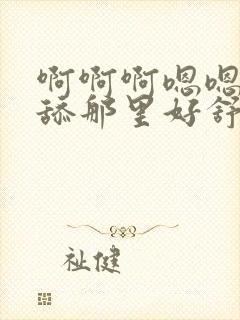 啊啊啊嗯嗯
舔那里好舒
祉健